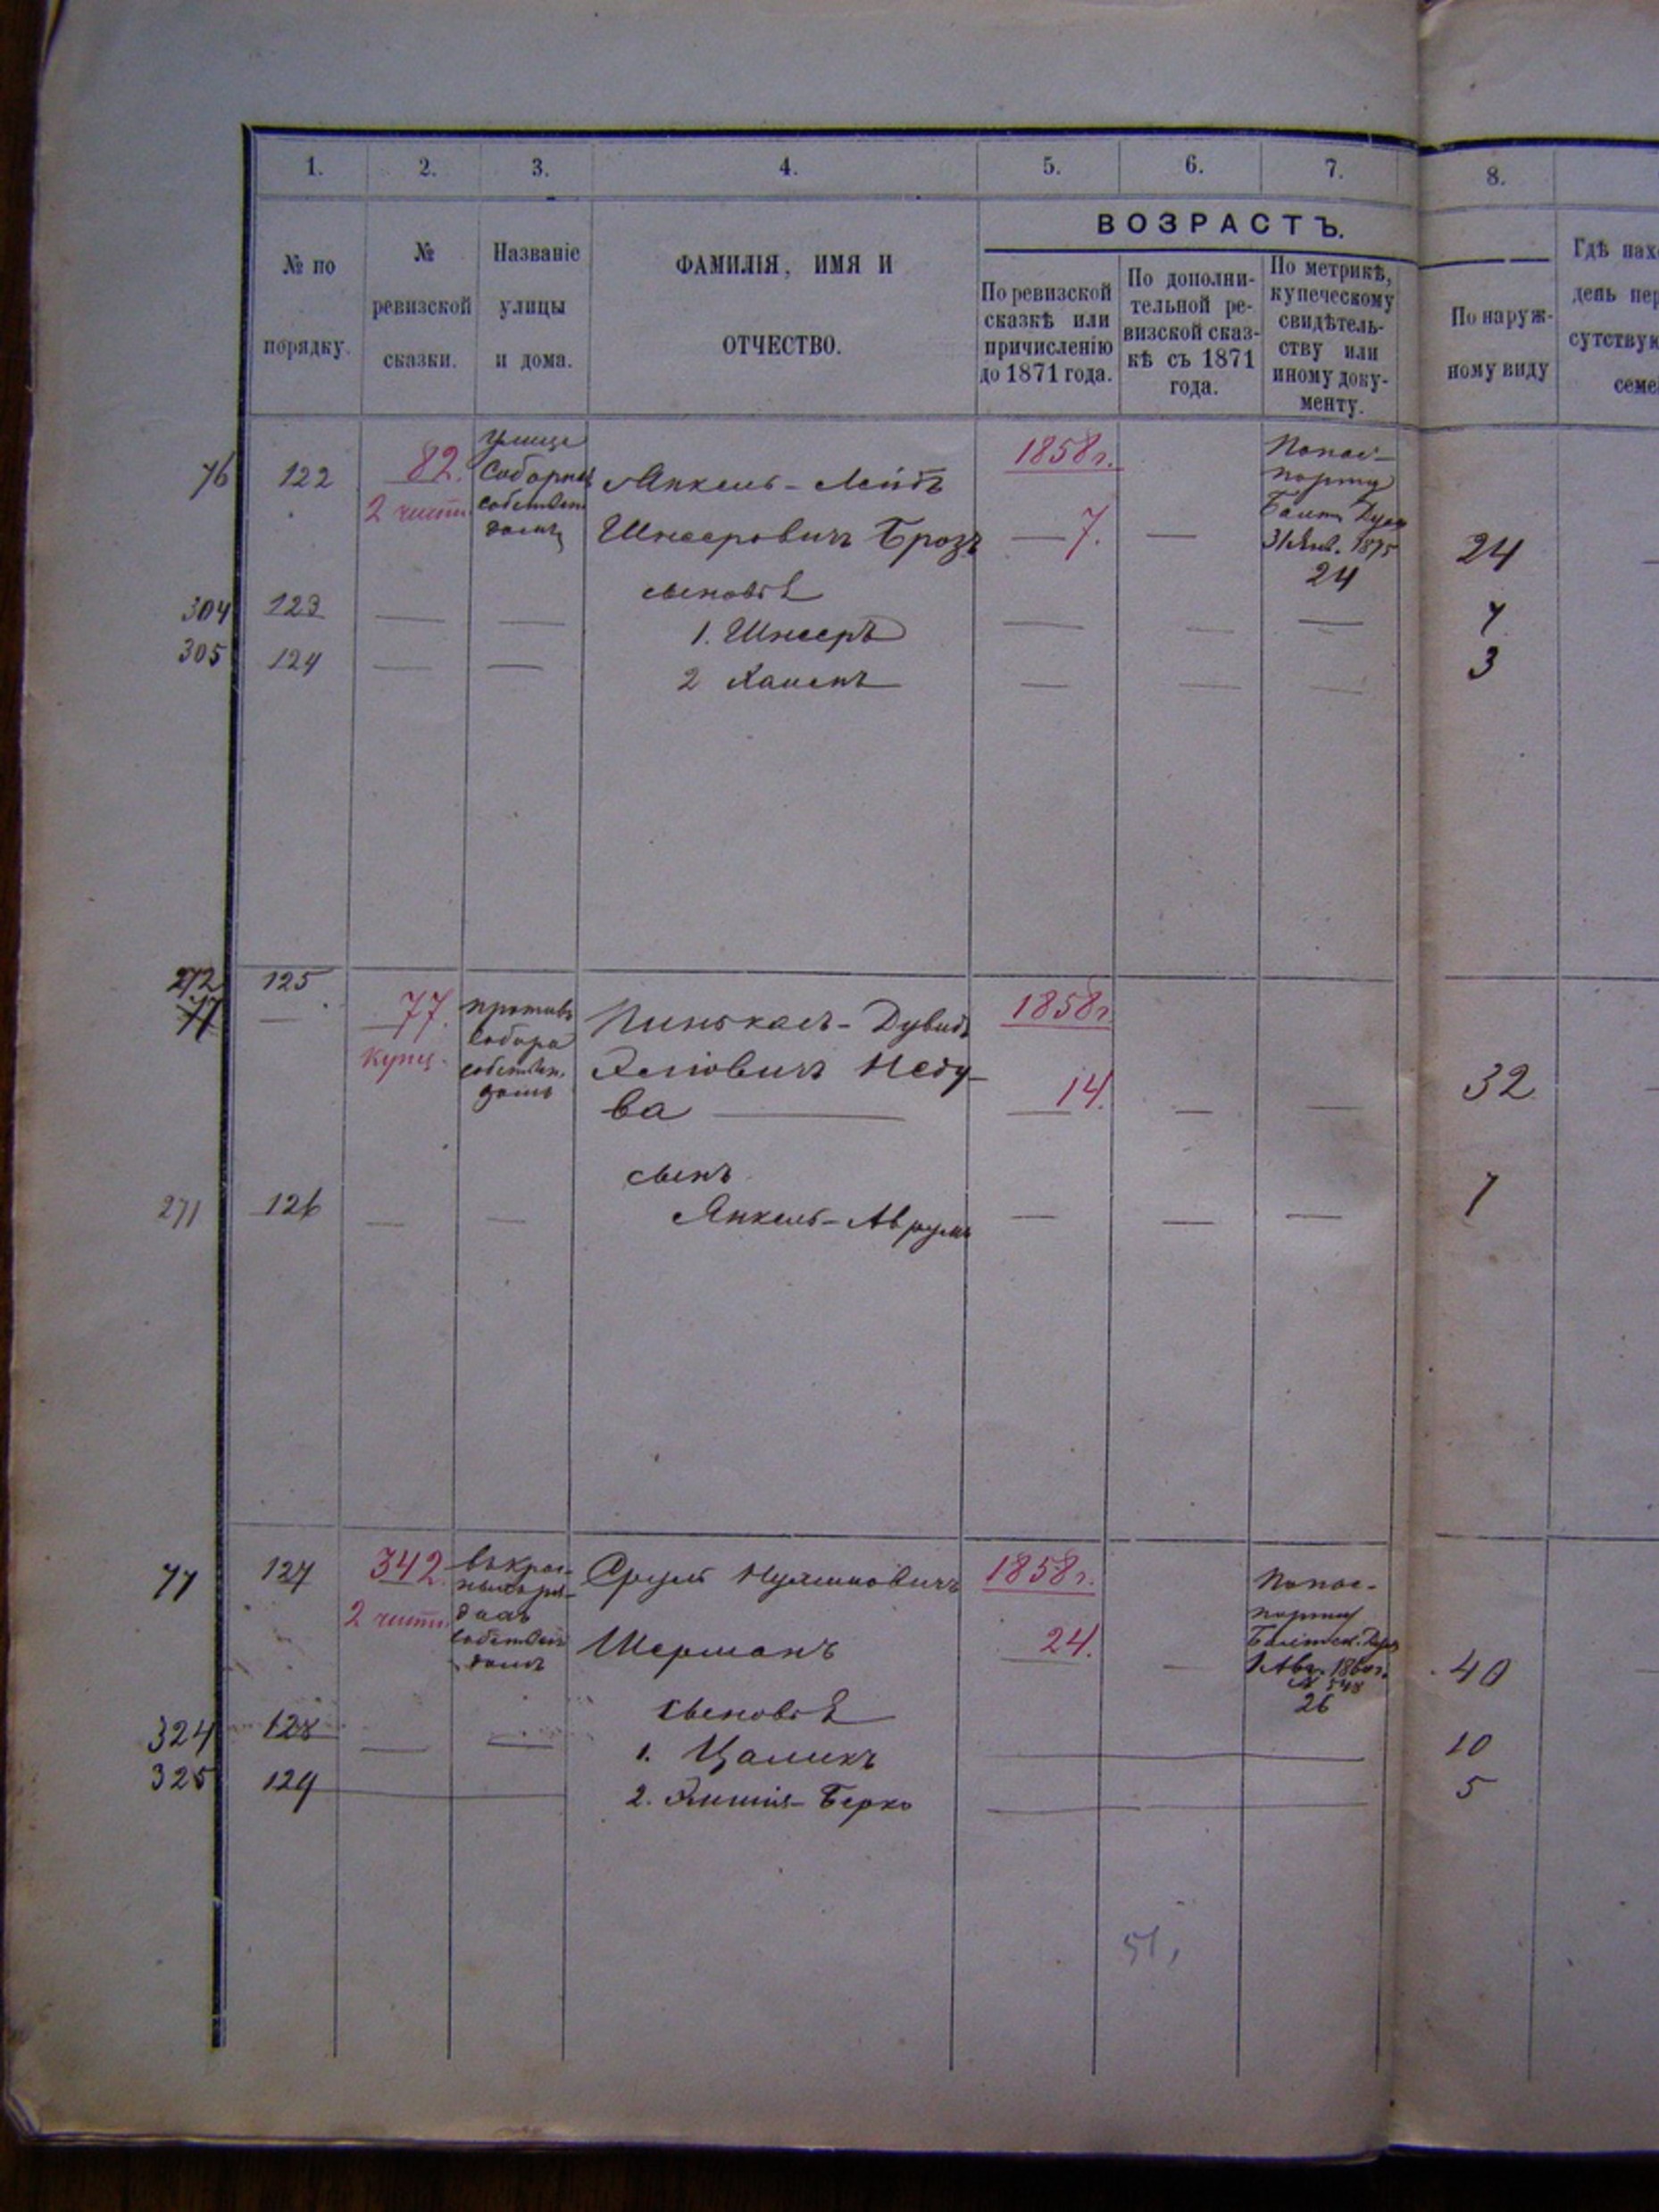 1. 2. 3. 4. 5. 6. 7. 8.
ВОЗРАСТЪ.
№ по
порядку.
№
ревизской
сказки.
Названіе
улицы
и дома.
ФАМИЛІЯ, ИМЯ И
ОТЧЕСТВО.
По ревизской
сказкѣ или
причисленію
до 1871 года.
По дополни-
тельной ре-
визской сказ-
кѣ съ 1871
года.
По метрикѣ,
купеческому
свидѣтель-
ству или
иному доку-
менту.
По наруж-
ному виду
Гдѣ
день
семе
76 122 82.
2 части
улица
Соборная
собствен
домъ
Янкель-Лейбъ
Шнееровичъ Брозъ
1858 г.
7.
—
По пас-
порту
31 Янв. 1875
24
24
сыновья
304 123 — — 1. Шнееръ — — — 7
305 124 — — 2 Хаимъ — — — 3
272 125
77
—
77.
купец.
противъ
собора
собствен.
домъ
Пинькасъ-Дувидъ
Неду-
ва
1858 г
14.
— —
32
сынъ
271 126 — — Янкель-Аврумъ — — — 7
77 127 342.
2 части.
собствен
домъ
Сруль
Шерманъ
1858 г.
24.
—
По пас-
порту
1 Авг.
26
40
сыновья
324 128 — — 1. Цаликъ 10
325 129 2. Берко 5
51,